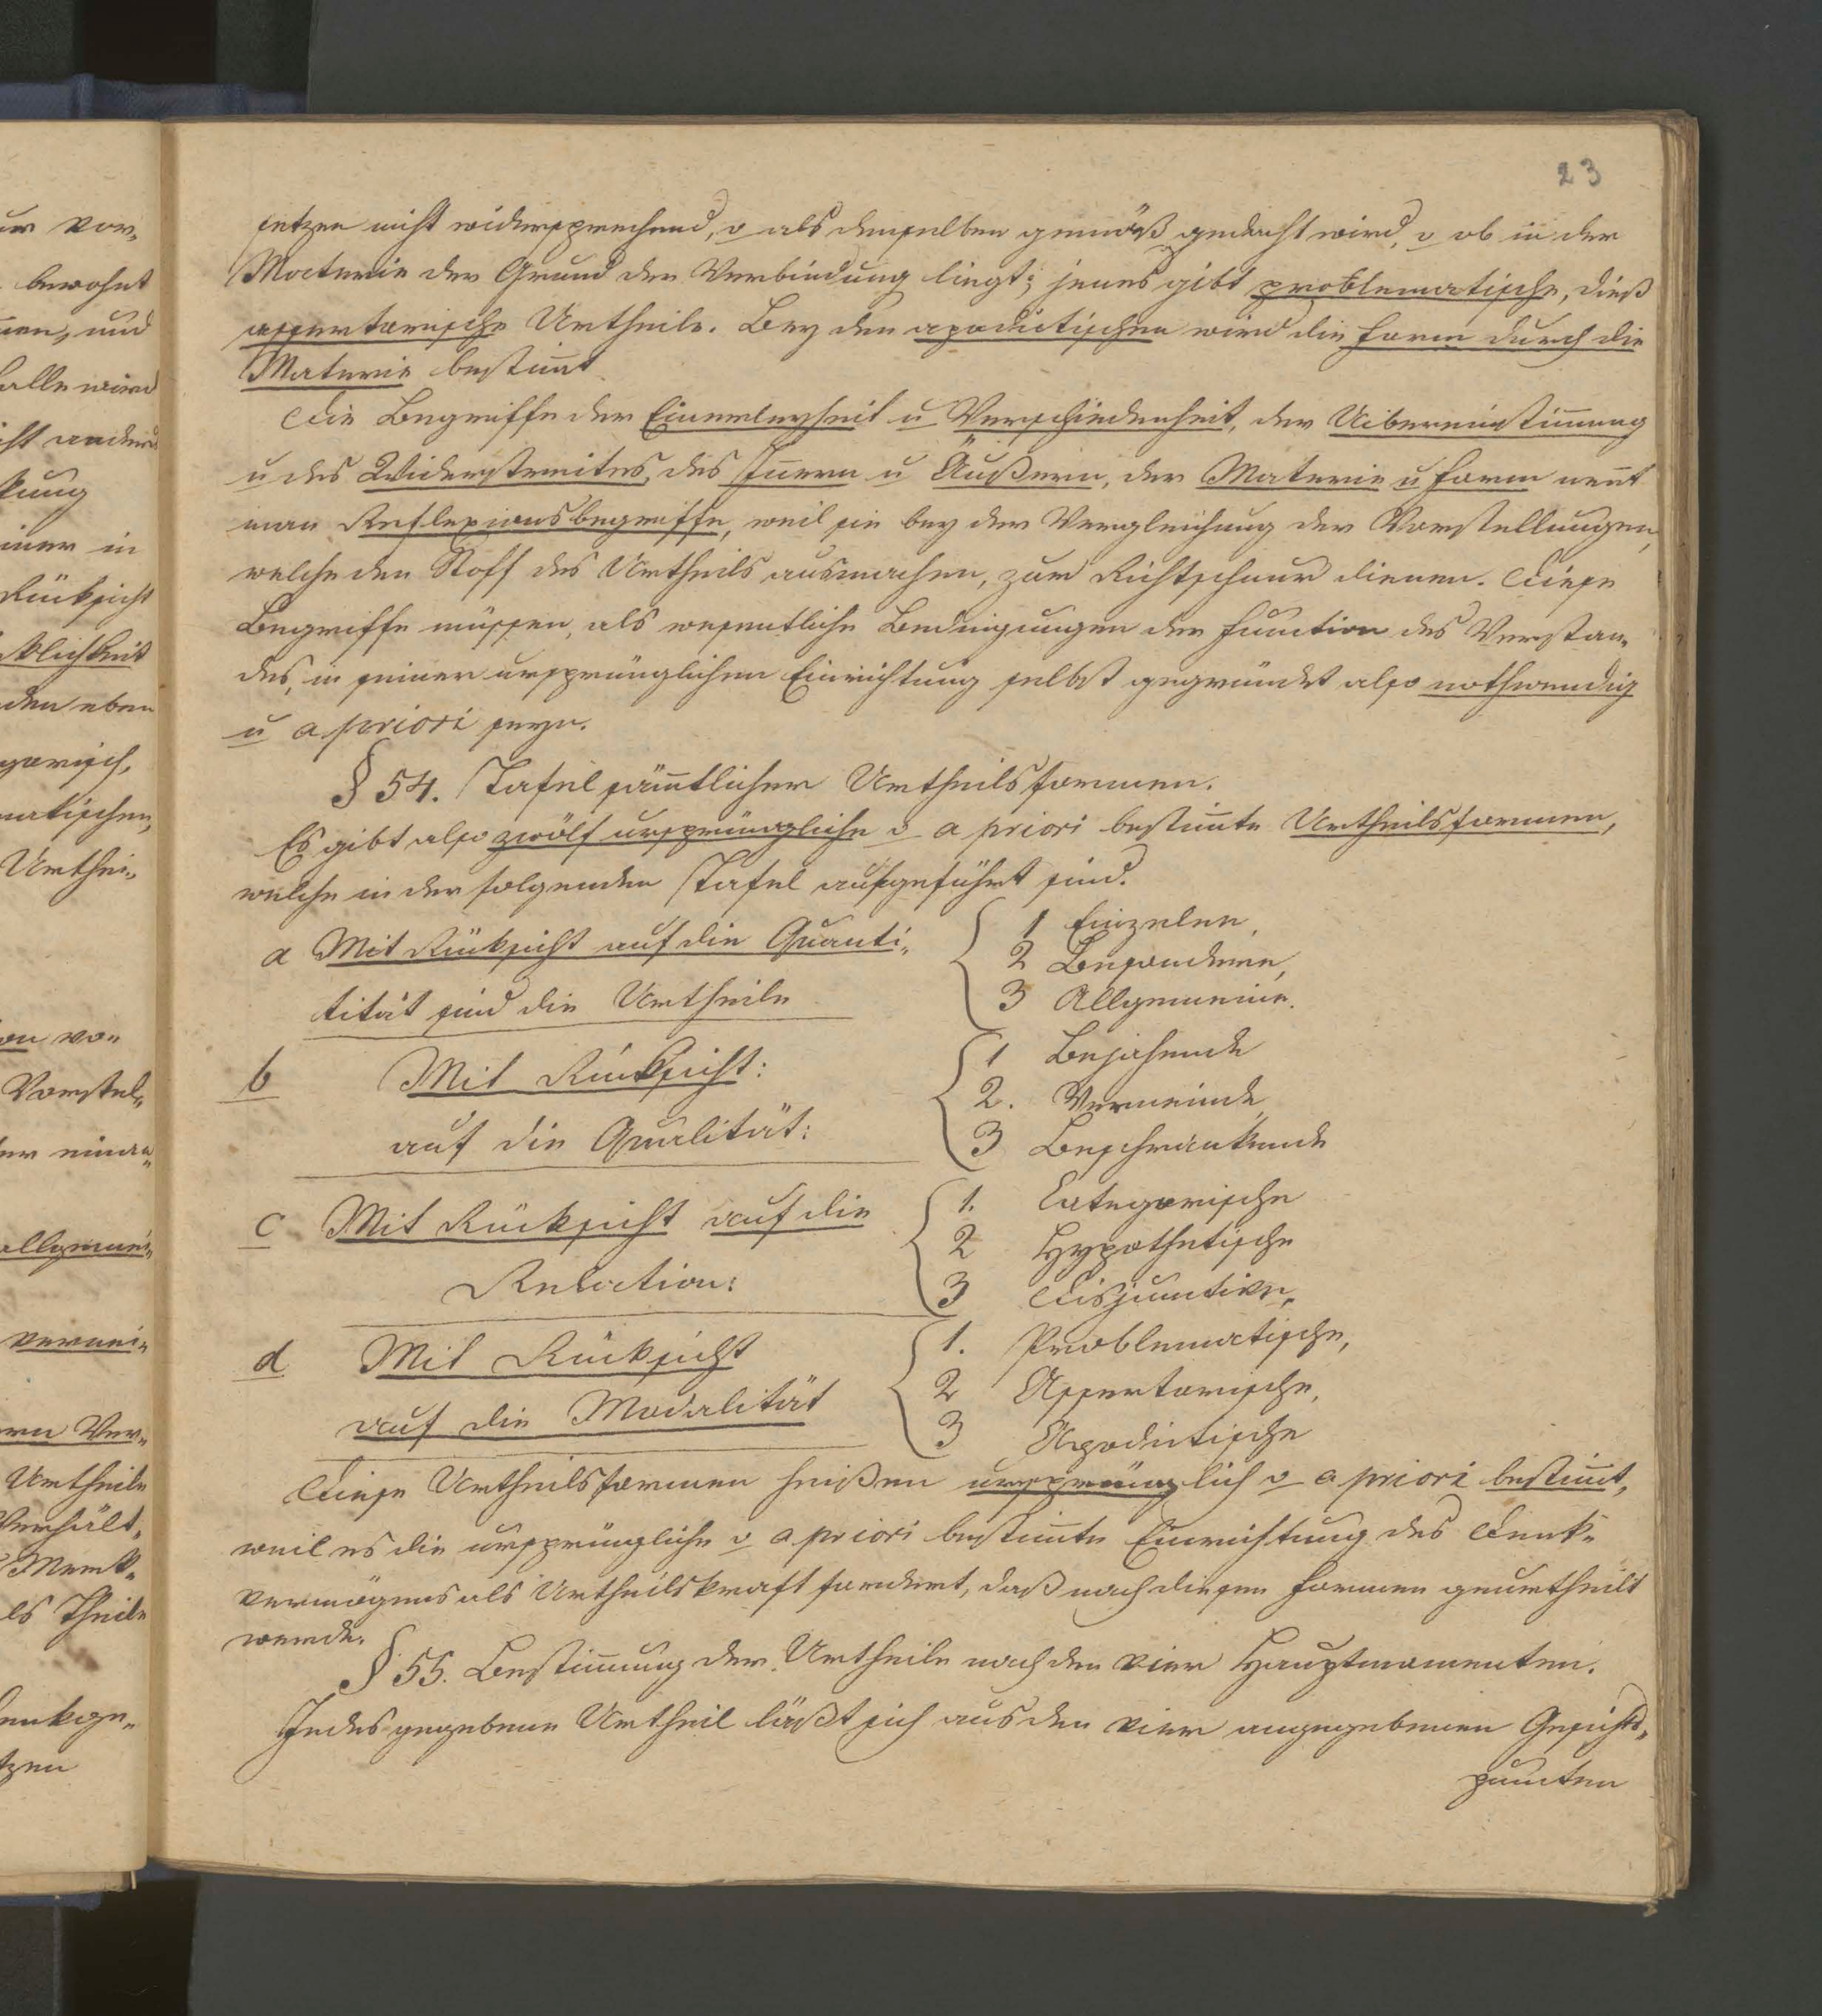 23
setzen nicht widersprechend, o als denselben gemäß gedacht wird, o ob in der
Materie der Grund der Verbindung liegt; jenes gibt problematische, dieß
assertorische Urtheile. Bey den apodictischen wird die Form durch die
Materie bestim̅t
Die Begriffe der Einerleyheit u Verschiedenheit, der Uibereinstim̅ung
u des Widerstreites, des In̅ern u Äußern, der Materie u Form nen̅t
man Reflexionsbegriffe, weil sie bey der Vergleichung der Vorstellungen,
welche den Stoff des Urtheils ausmachen, zur Richtschnur dienen. Diese
Begriffe müssen, als wesentliche Bedingungen der Function des Verstan-
des, in seiner ursprünglichen Einrichtung selbst gegründet also nothwendig
u a priori seyn.
§ 54. Tafel säm̅tlicher Urtheilsformen.
Es gibt also zwölf ursprüngliche o a priori bestim̅te Urtheilsformen,
welche in der folgenden Tafel aufgeführt sind.
a Mit Rücksicht auf die Quanti-
tität sind die Urtheile
1 Einzelne,
2 Besondere,
3 Allgemeine.
b Mit Rücksicht:
auf die Qualität:
1 Bejahende
2. Verneinde
3 Beschränkende
c Mit Rücksicht auf die
Relation:
1. Categorische
2 Hypothetische
3 Disjunctive,
d Mit Rücksicht
auf die Modalität
1. Problematische,
2 Assertorische,
3 Apodictische
Diese Urtheilsformen heißen ursprünglich o a priori bestim̅t,
weil es die ursprüngliche o a priori bestim̅te Einrichtung des Denk-
vermögens als Urtheilskraft fordert, daß nach diesen Formen geurtheilt
werde.
§ 55. Bestim̅ung der Urtheile nach den vier Hauptmomenten.
Jedes gegebene Urtheil läßt sich aus den vier angegebenen Gesichts-
puncten